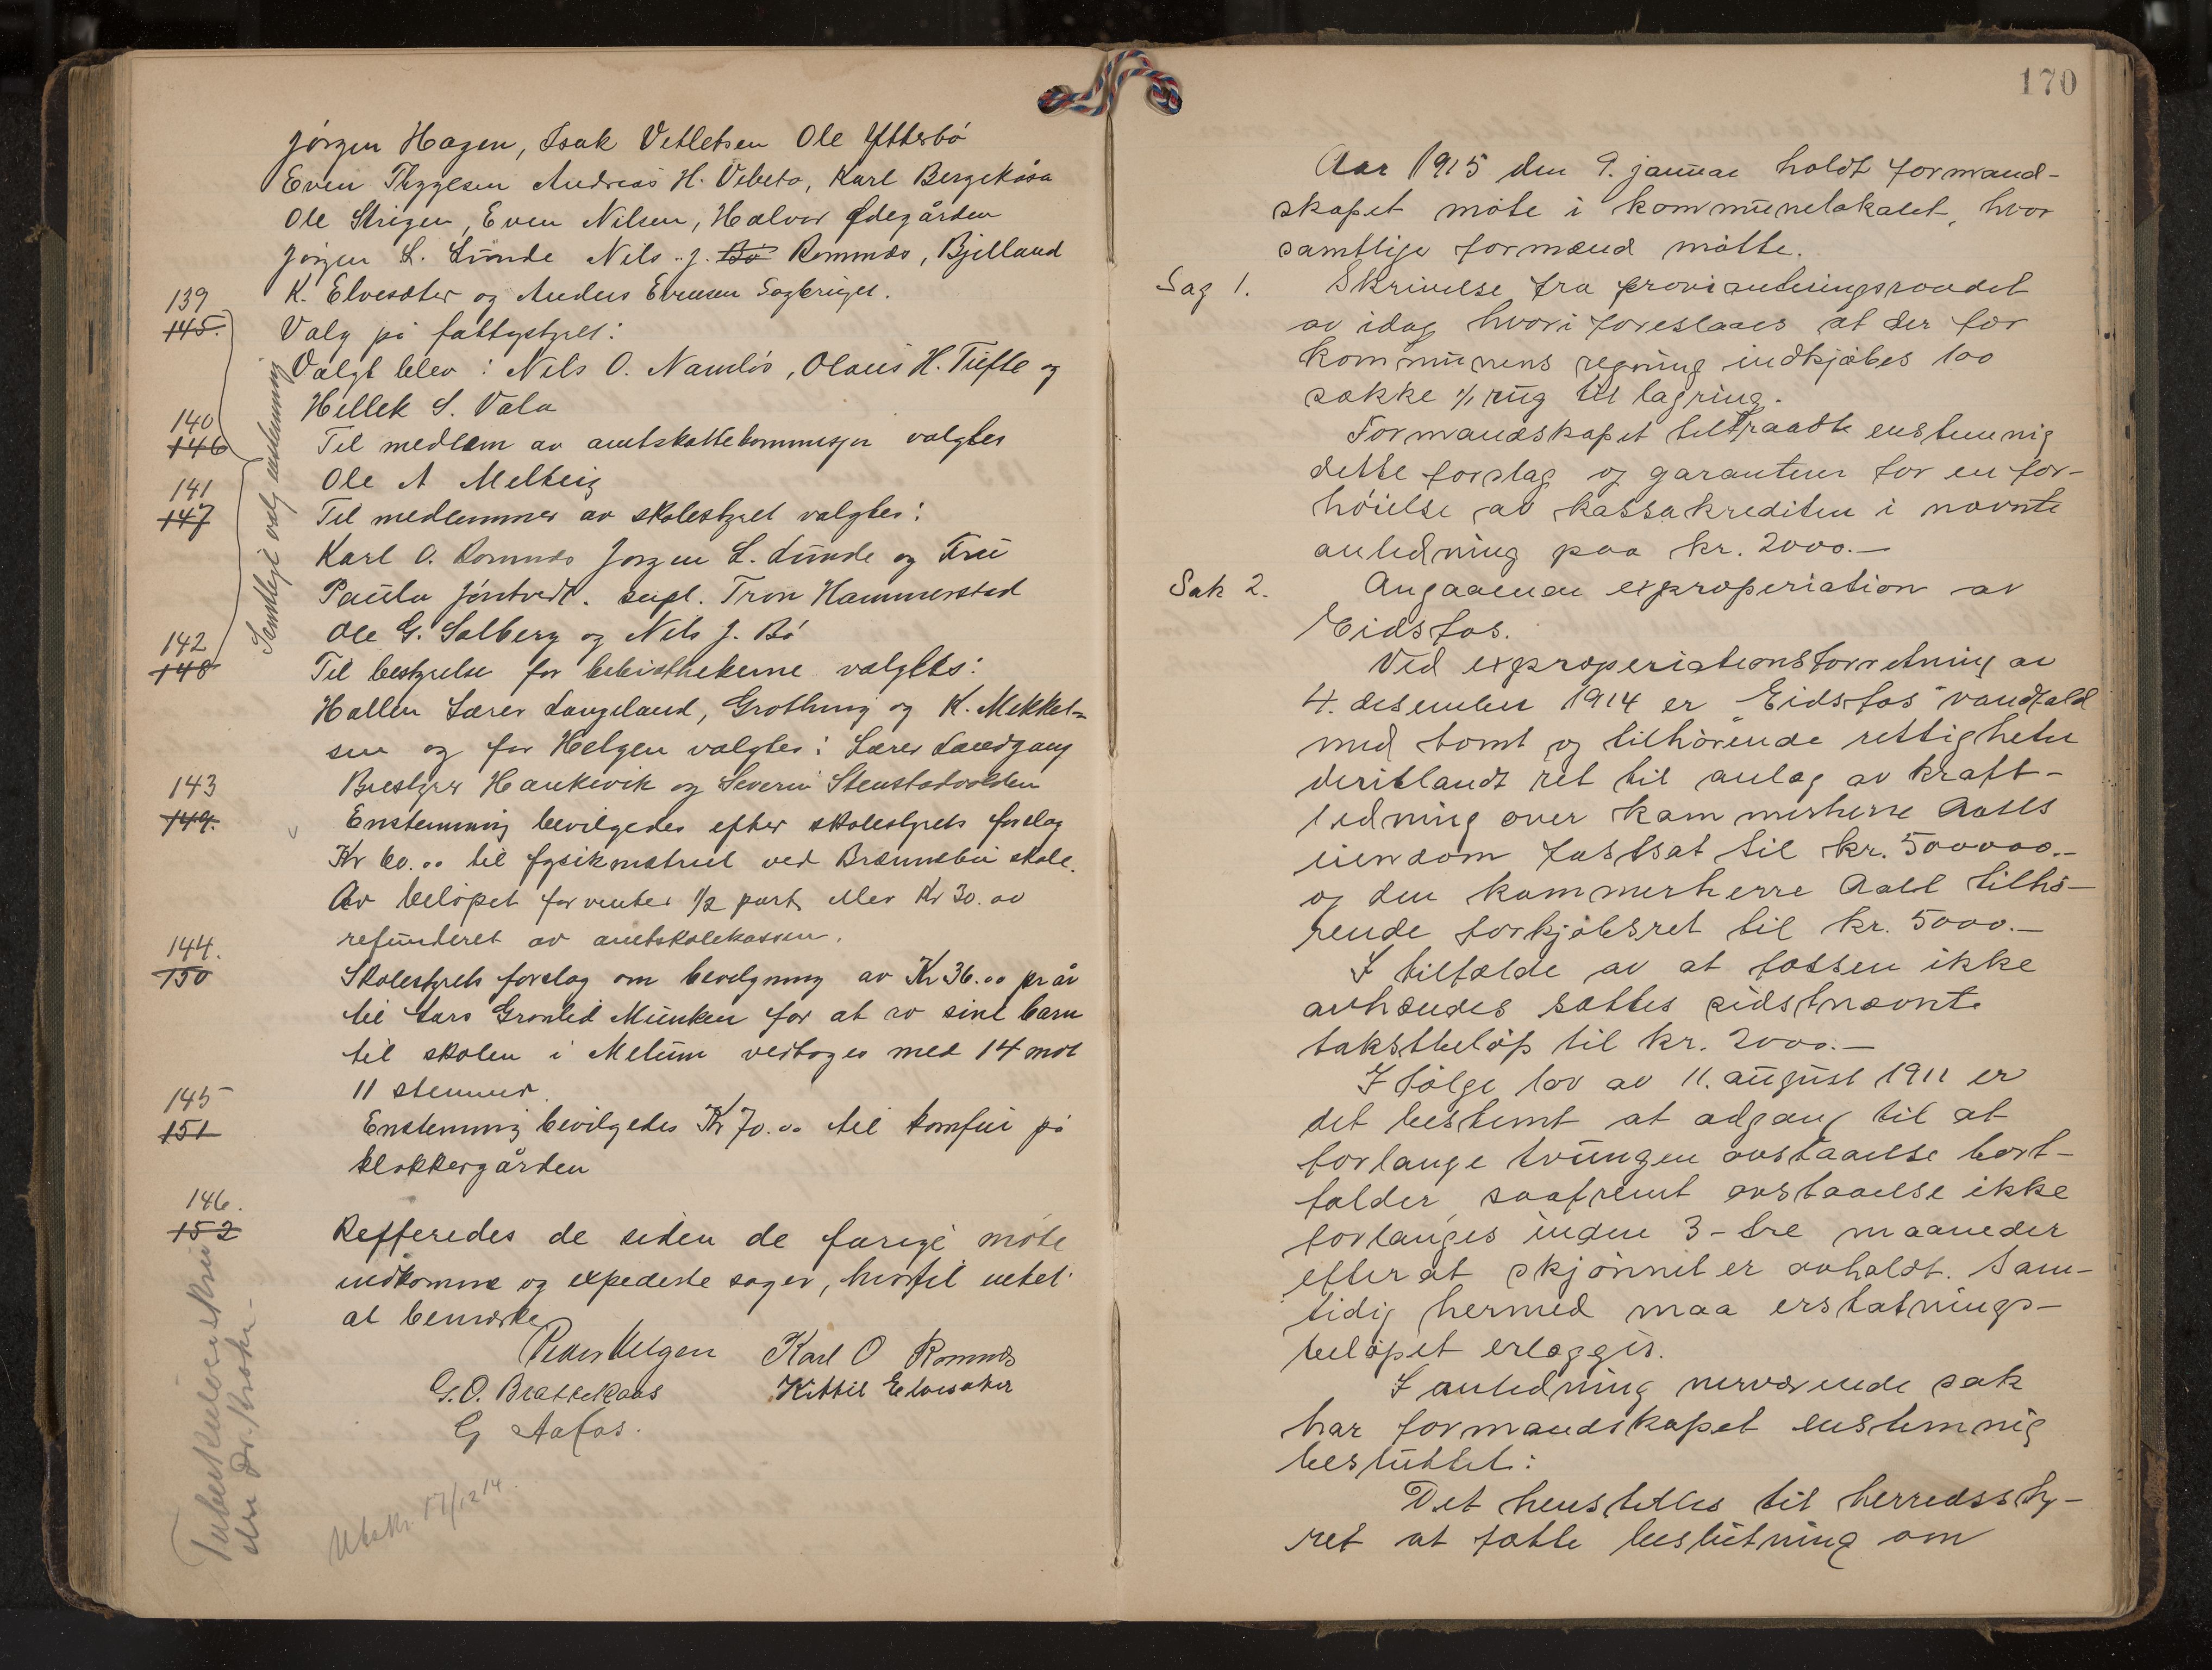 Jörgen Hagen, Isak Vetletsen Ole Ytterbö
Even Thygesen Andreas H. Vibeto, Karl Bergekåsa
Ole Strigen, Even Nilsen, Halvor Ødegården
Jörgen L. Lunde Nils J. Bö Romnæs, Bjelland
K. Elvesæter og Anders Evensen
139
145.
Valg på fattigstyret:
Valgt blev: Nils O. Namlös, Olaus H. Tufte og
Hellek S. Vala
140
146
Til medlem av amtskattekommisjon valgtes
Ole A Melteig
141
147
Til medlemmer av skolestyret valgtes:
Karl O. Romnæs Jorgen L. Lunde og Fru
Paula Jöntvedt. supl. Tron Hammerstad
Ole G. Solberg og Nils J. Bö
142
148
Til bestyrelse for bibliothekerne valgtes:
Hallen Lærer Langeland, Grothung og K. Mikkel-
sen og for Helgen valgtes: Lærer Landgang
Brestyrer Haukevik og Severin Stenstadvolden
Samtlige valg enstemmig
143
149.
Enstemmig bevilgedes efter skolestyrets forslag
Kr 60.00 til fysikmatriel ved Brænnebu skole.
Av belöpet forventes 1/2 part eller Kr 30.00
refunderet av amtskolekassen.
144.
150
Skolestyrets forslag om bevilgning av Kr 36.00 pr år
til Lars Gronlid Munken for at ro sine barn
til skolen i Melum vedtoges med 14 mot
11 stemmer.
145
151
Enstemmig bevilgedes Kr 70.00 til komfur på
klokkergården
146.
152
Refferedes de siden de forige möte
indkomne og expederte sager, hvortil intet
at bemærke
Peder Helgen Karl O Romnæs
G. O. Brattekaas Kittil Elvesæter
G Aafos.
Tuberkuloseskriv
dr. Kroken
Utskr. 17/12 14.
170
Aar 1915 den 9. januar holdt formand-
skapet möte i kommunelokalet, hvor
samtlige formænd mötte.
Sag 1.
Skrivelse fra provianteringsraadet
av idag hvori foreslaaes at der for
kommunens regning indkjøbes 100
sække 1/1 rug til lagring.
Formandskapet tiltraadte enstemmig
dette forslag og garanterer for en for-
höielse av kassakrediten i nævnte
anledning paa kr. 2000.—
Sak 2.
Angaaende exproperiation av
Eidsfos.
Ved exproperiationsforretning av
4. desember 1914 er "Eidsfos" vandfald
med tomt og tilhörende rettigheter
deriblandt ret til anlæg av kraft-
ledning over kammerherre Aalls
eiendom fastsat til kr. 500000.—
og den kammerherre Aall tilhö-
rende forkjøbsret til kr. 5000.—
I tilfælde av at fossen ikke
avhændes sættes sidstnævnte
takstbeløp til kr. 2000.—
I fölge lov av 11. august 1911 er
det bestemt at adgang til at
forlange tvungen avstaaelse bort-
falder, saafremt avstaaelse ikke
forlanges inden 3-tre maaneder
efter at skjönnet er avholdt. Sam-
tidig hermed maa erstatnings-
belöpet erlægges.
I anledning nærværende sak
har formandskapet enstemmig
besluttet:
Det henstilles til herredssty-
ret at fatte beslutning om